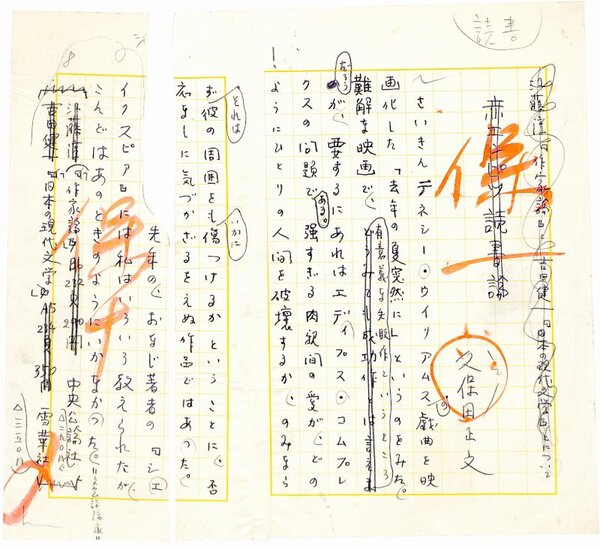 読書
江藤淳『作家論』と吉田健一『日本の現代文学』とについて
赤エンピツ読書論
久保田正文
さいきん テネシー・ウイリアムス戯曲を映
画化した「去年の夏突然に」というのをみた。
難解な映画で、
有意義な失敗作というところ
どうみても成功作とは言えま
だろうが、要するにあれはエディプス・コムプレ
クスの問題で、強すぎる肉親間の愛が、どの
ある。
ようにひとりの人間を破壊するか、のみなら
ず彼の周囲をも傷つけるかということに、否
それは
いかに
応なしに気づかざるをえぬ作品ではあった。
先年の、おなじ著者の『シェ
イクスピア』には私はいろいろ教えられたが、
こんどはあのときのようにいかなかった。
江藤淳『作家論』B6 232頁 290円 中央公論社
吉田健一『日本の現代文学』A5 234頁 350円 雪華社